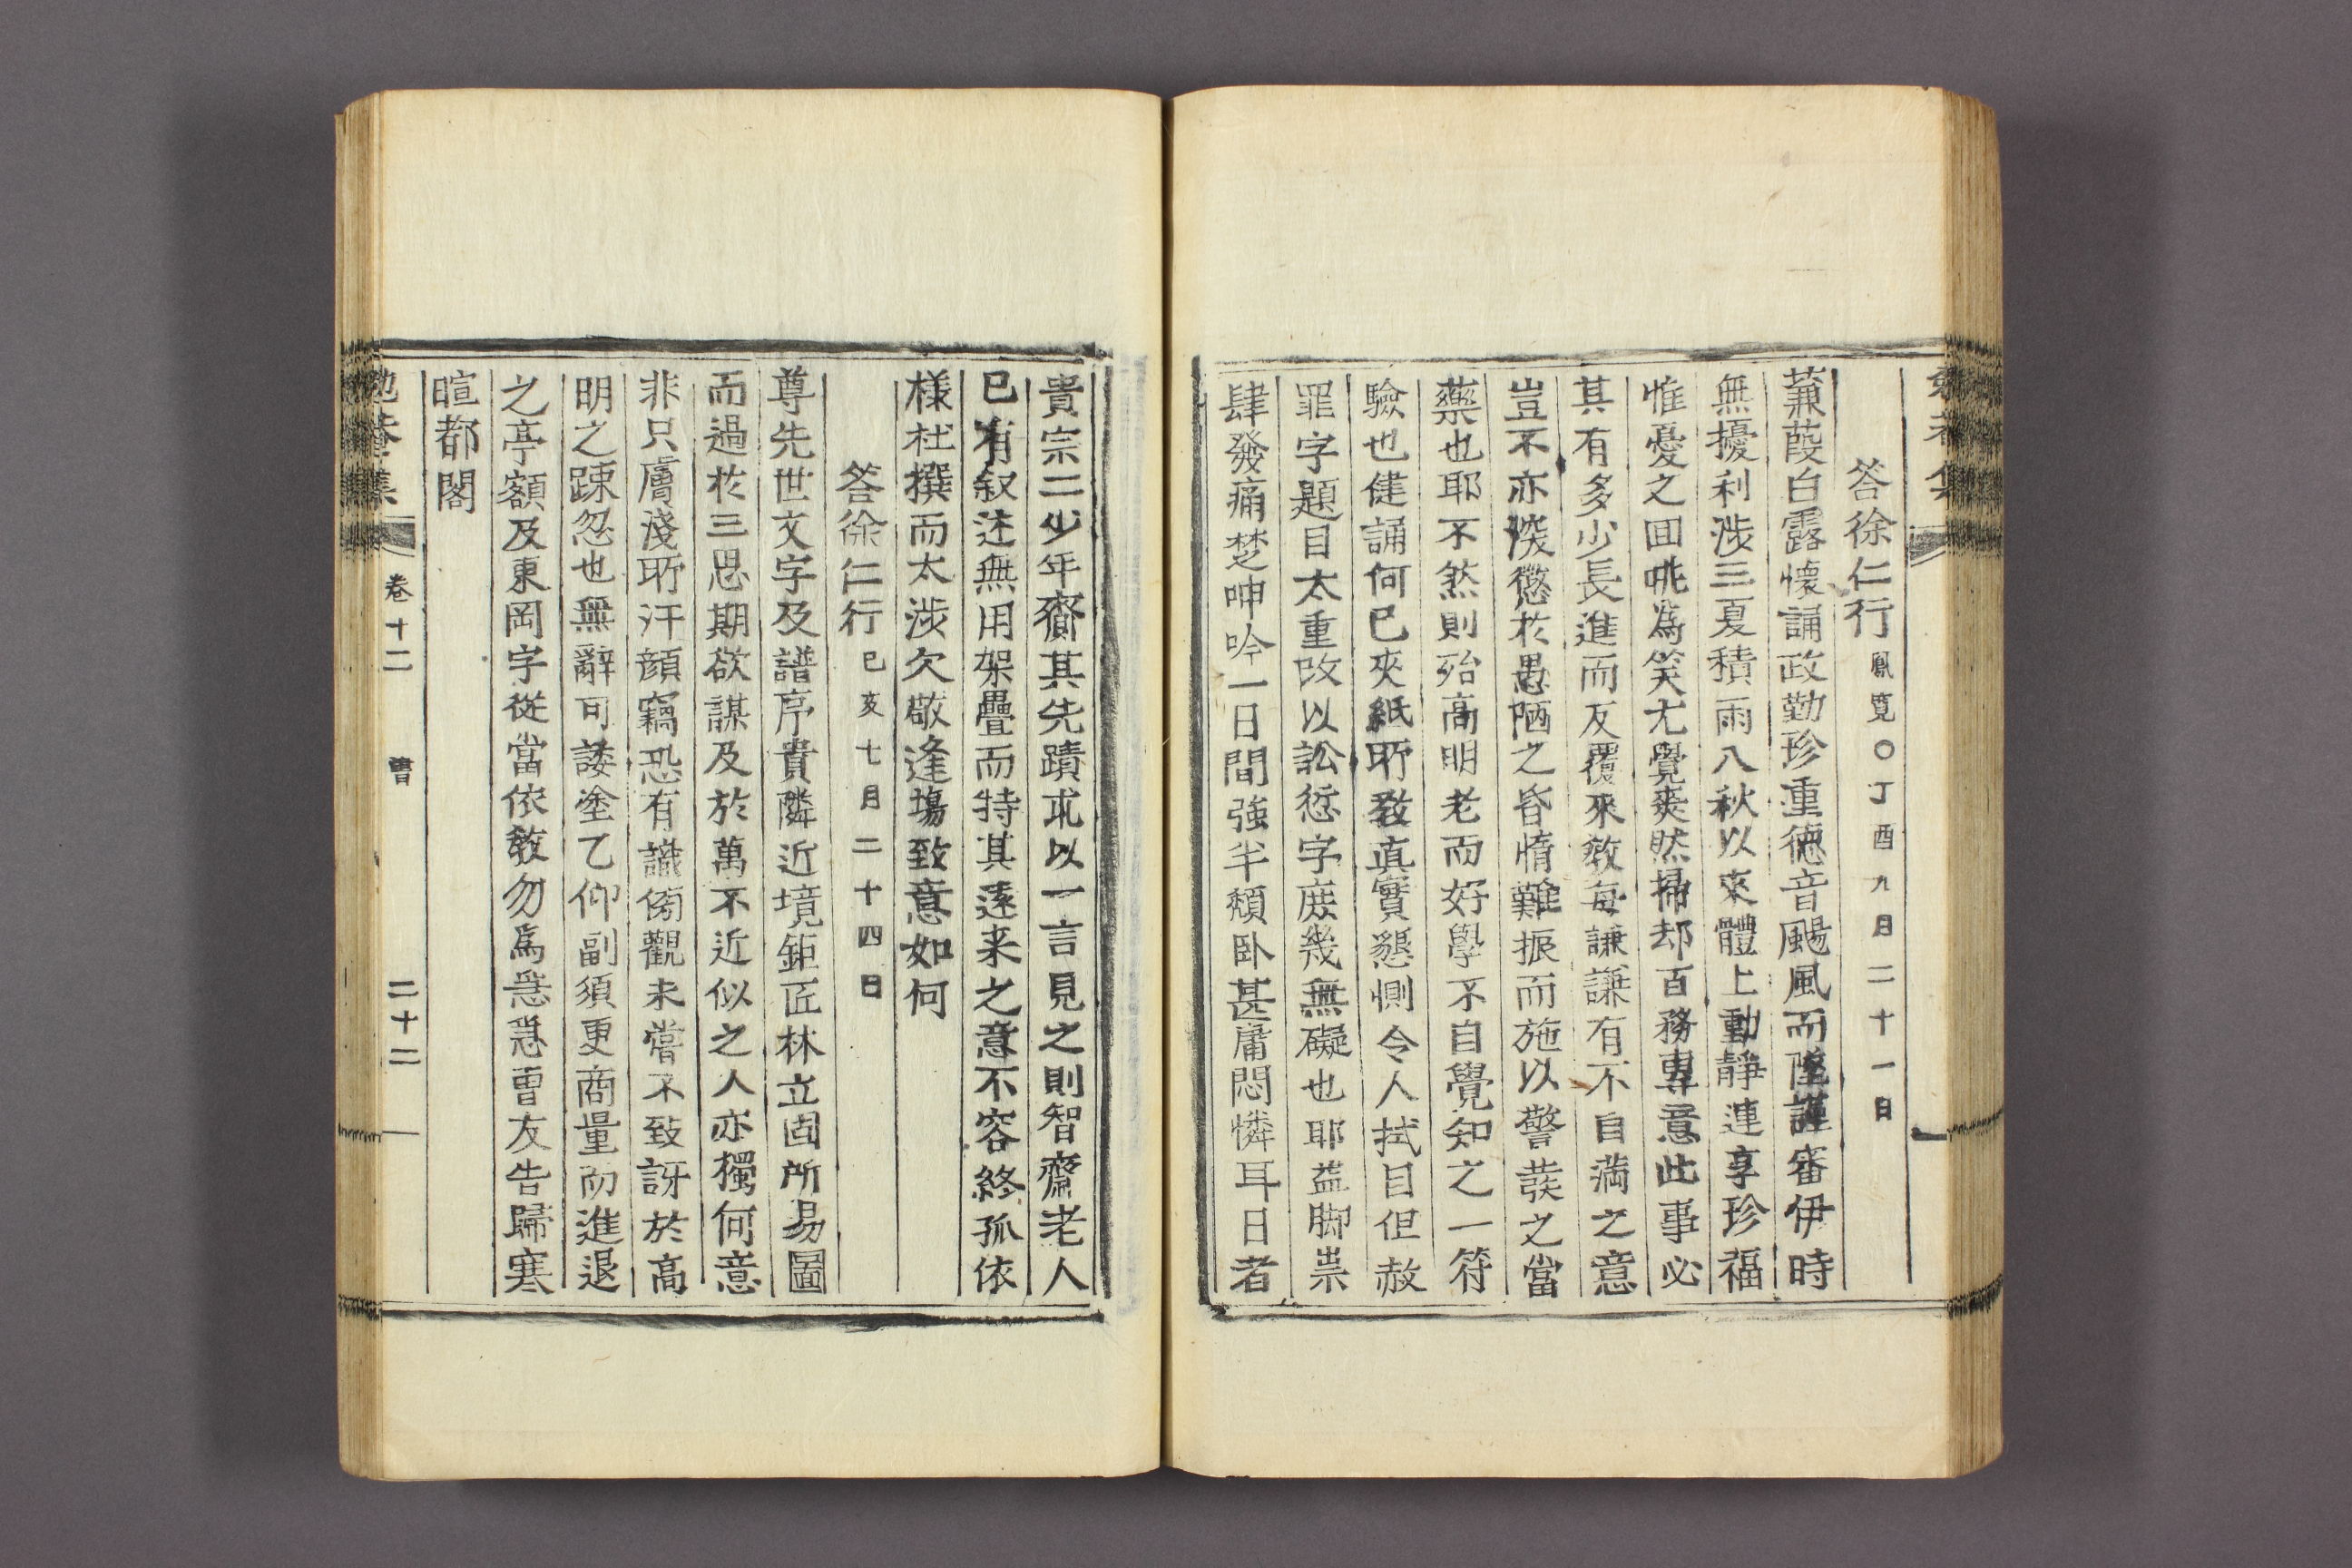 答徐仁行鳳覽〇丁酉九月二十一日
蒹葭白露懷誦政勤珍重德音颺風而墮謹審伊時
無擾利涉三夏積雨八秋以來體上動靜連享珍福
惟憂之回咷為笑尤覺爽然掃却百務專意此事必
其有多少長進而反覆來教每謙謙有不自滿之意
豈不亦深懲於愚陋之昏惰難振而施以警發之當
藥也耶不然則殆高明老而好學不自覺知之一符
驗也健誦何已夾紙所教真實懇惻令人拭目但赦
罪字題目太重改以訟愆字庶幾無礙也耶益脚祟
肆發痛楚呻吟一日間強半頹臥甚庸悶憐耳日者
貴宗二少年齎其先蹟求以一言見之則智齋老人
已有叙述無用架疊而特其遠来之意不容終孤依
樣杜撰而太涉欠敬逢塲致意如何
答徐仁行己亥七月二十四日
尊先世文字及譜序貴隣近境鉅匠林立固所易圖
而過於三思期欲謀及於萬不近似之人亦獨何意
非只膚淺所汗顔竊恐有識傍觀未嘗不致訝於高
明之踈忽也無辭可諉塗乙仰副須更商量而進退
之亭額及東岡字從當依教勿為急急曺友告歸寒
暄都閣
卷十二 書 二十二